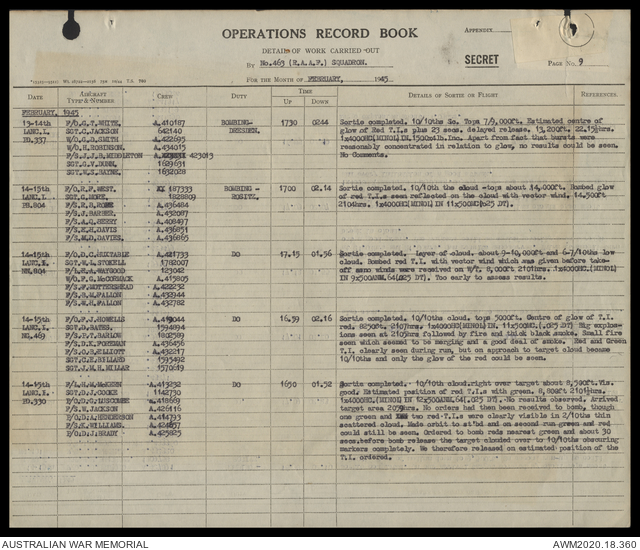 OPERATIONS RECORD BOOK
APPENDIX
DETAILS OF WORK CARRIED OUT
SECRET
PAGE No. 9
BY No.463 (R.A.A.F.) SQUADRON.
FOR THE MONTH OF FEBRUARY, 1945
DATE AIRCRAFT TYPE & NUMBER CREW DUTY TIME UP DOWN DETAILS OF SORTIE OR FLIGHT REFERENCES
FEBRUARY, 1945
13-14th F/O.G.T.WHITE. A.410187 BOMBING- 1730 0244 Sortie completed. 10/10ths Sc. Tops 7/9,000ft. Estimated centre of
LANC.I. SGT.C.JACKSON 642140 DRESDEN. glow of Red T.I.s plus 23 secs. delayed release. 13,200ft. 22.15½hrs.
W/O.G.B.SMITH A.422695 Apart from fact that bursts were
W/O.H.ROBINSON. A.434015 reasonably concentrated in relation to glow, no results could be seen.
F/S.J.J.B.MIDDLETON 423013 No Comments.
SGT.G.V.DUNN. 1829631
SGT.W.S.BAYNE. 1832028
14-15th F/O.R.F.WEST. 187333 BOMBING - 1700 02.14 Sortie completed. 10/10th the cloud -tops about 14,000ft. Bombed glow
LANC.I. SGT.G.HOPE. 1828809 ROSITZ. of red T.I.s seen reflected on the cloud with vector wind. 14,500ft
PB.804 A.436484 2104hrs. 1x4000HC(MINOL) IN 11x500HC(.025 DT).
F/S.J.BARBER. A.432087
A.408497
F/S.E.H.DAVIS A.436851
F/S.M.D.DAVIES. A.436865
14-15th F/O.D.C.HUXTABLE A.421733 DO 17.15 01.56 Sortie completed. Layer of cloud. about 9-10,000ft and 6-7/10ths low
SGT.W.L.STOKELL 1782007 cloud. Bombed red T.I. with vector wind which was given before take-
NN.804 F/L.E.A.WAYGOOD 123042 off as no winds were received on W/T. 8,000ft 2101hrs. 1x4000HC.(MINOL)
W/O.F.G.McCORMACK A.415805 IN 9x500ANM.64(.025 DT). Too early to assess results.
F/S.F.MOTTERSHEAD A.422232
F/S.R.M.FALLON A.432944
F/S.H.M.FALLON A.432782
14-15th F/O.F.J.HOWELLS DO 16.59 02.16 Sortie completed. 10/10ths cloud. tops 5000ft. Centre of glow of T.I.
LANC.I. SGT.D.BATES. 1594894 red. 8250ft. 2107hrs. 1x4000HC(MINOL)IN. 11x500HC.(.025 DT) Big explos-
NG.469 F/S.F.T.BARLOW 1802589 ions seen at 2105hrs followed by fire and thick black smoke. Small fire
F/S.D.K.FOREMAN A.436456 seen which seemed to be merging and a good deal of smoke. Red and Green
F/S.O.B.ELLIOTT A.432217 T.I. clearly seen during run, but on approach to target cloud became
SGT.C.E.BULLARD 1595492 10/10ths and only the glow of the red could be seen.
SGT.J.M.H.MILLAR 1570619
14-15th F/L.H.M.McKEEN A.413232 DO 1650 01.52 Sortie completed. 10/10th cloud.right over target about 8,500ft.Vis.
SGT.D.J.COOKE 1142730 good. Estimated position of red T.I.s with green. 8,800ft
ED.330 F/O.D.G.LUSCOMBE A.418669 1x4000HC.(MINOL) IN 12x500ANM.64(.025 DT). No results observed. Arrived
F/S.W.JACKSON A.426416 target area 2059hrs. No orders had then been received to bomb, though
F/O.D.A.HENDERSON A.414793 one green and two red T.I.s were clearly visible in 2/10ths thin
F/S.K.WILLIAMS. A.424857 scattered cloud. Made orbit to st'bd and on second run green and red
W/O.D.J.BRADY A.425825 could still be seen. Ordered to bomb reds nearest green and about 30
secs.before bomb release the target clouded over to 10/10ths obscuring
markers completely. We therefore released on estimated position of the
T.I. ordered.
AUSTRALIAN WAR MEMORIAL
AWM2020.18.360